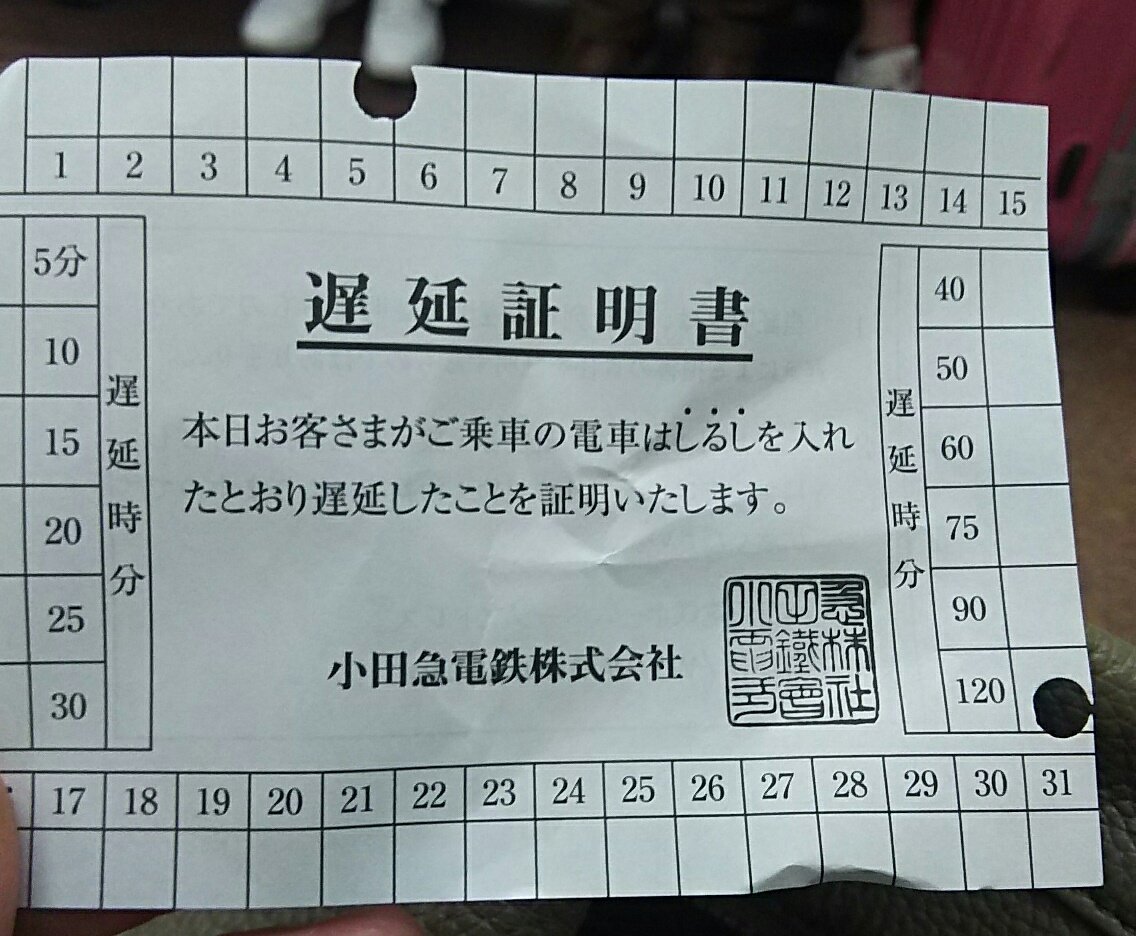 1 2 3 4 5 6 7 8 9 10 11 12 13 14 15
5分
10
15
20
25
30
遅延時分
遅延証明書
本日お客さまがご乗車の電車はしるしを入れ
たとおり遅延したことを証明いたします。
小田急電鉄株式会社
遅延時分
40
50
60
75
90
120
17 18 19 20 21 22 23 24 25 26 27 28 29 30 31